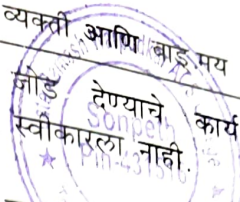 व्यक्ती आणि वाङ्मय
जोड देण्याचे कार्य
स्वीकारला नाही.
Sonpeth
Pin-431516